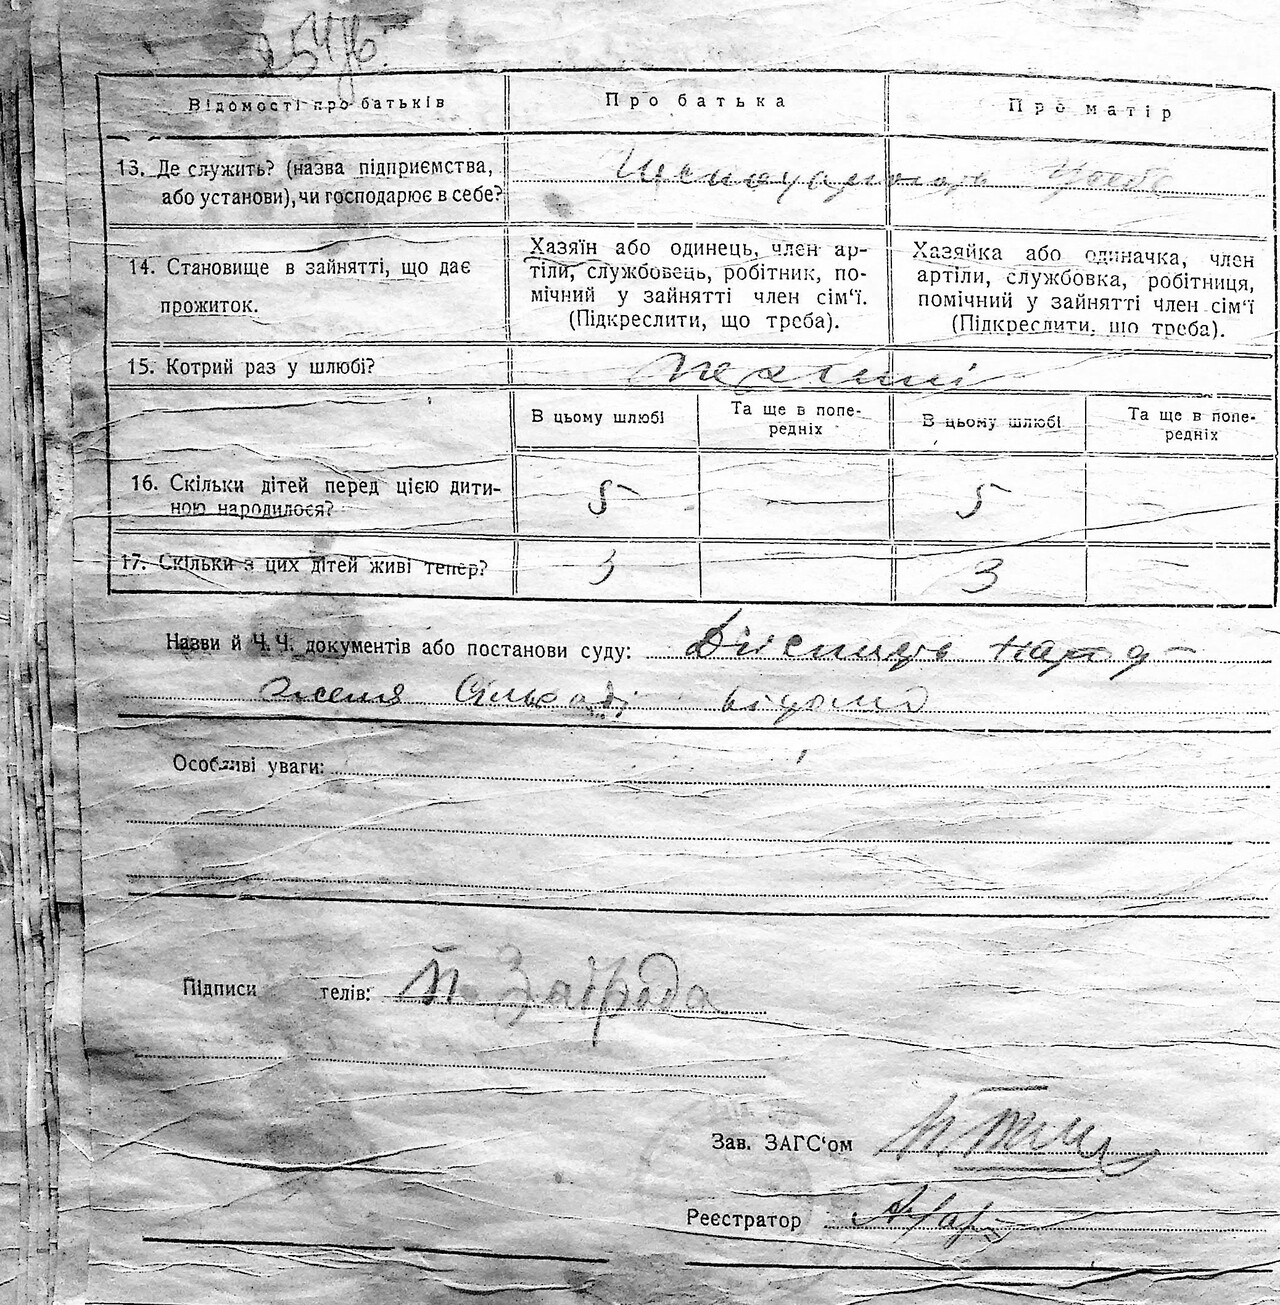 Відомості про батьків
Про батька
Про матір
13. Де служить? (назва підприємства,
або установи), чи господарює в себе?
14. Становище в зайнятті, що дає
прожиток.
Хазяїн або одинець, член ар-
тіли, службовець, робітник, по-
мічний у зайнятті член сім‘ї.
(Підкреслити, що треба).
Хазяйка або одиначка, член
артіли, службовка, робітниця,
помічний у зайнятті член сім‘ї
(Підкреслити, що треба).
15. Котрий раз у шлюбі?
В цьому шлюбі
Та ще в попе-
редніх
В цьому шлюбі
Та ще в попе-
редніх
16. Скільки дітей перед цією дити-
ною народилося?
5
—
5
—
17. Скільки з цих дітей живі тепер?
3
3
—
Назви й Ч.Ч. документів або постанови суду: народ-
ження Сільраді відома
Особливі уваги:
Підписи телів: Заграда
Зав. ЗАГС‘ом
Реєстратор